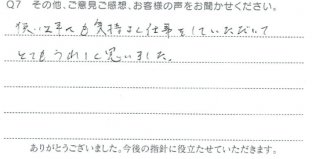 Q7 その他、ご意見ご感想、お客様の声をお聞かせください。
使い工具へも気持よく仕事をしていただいて
とてもうれしく思いました。
ありがとうございました。今後の指針に役立たせていただきます。